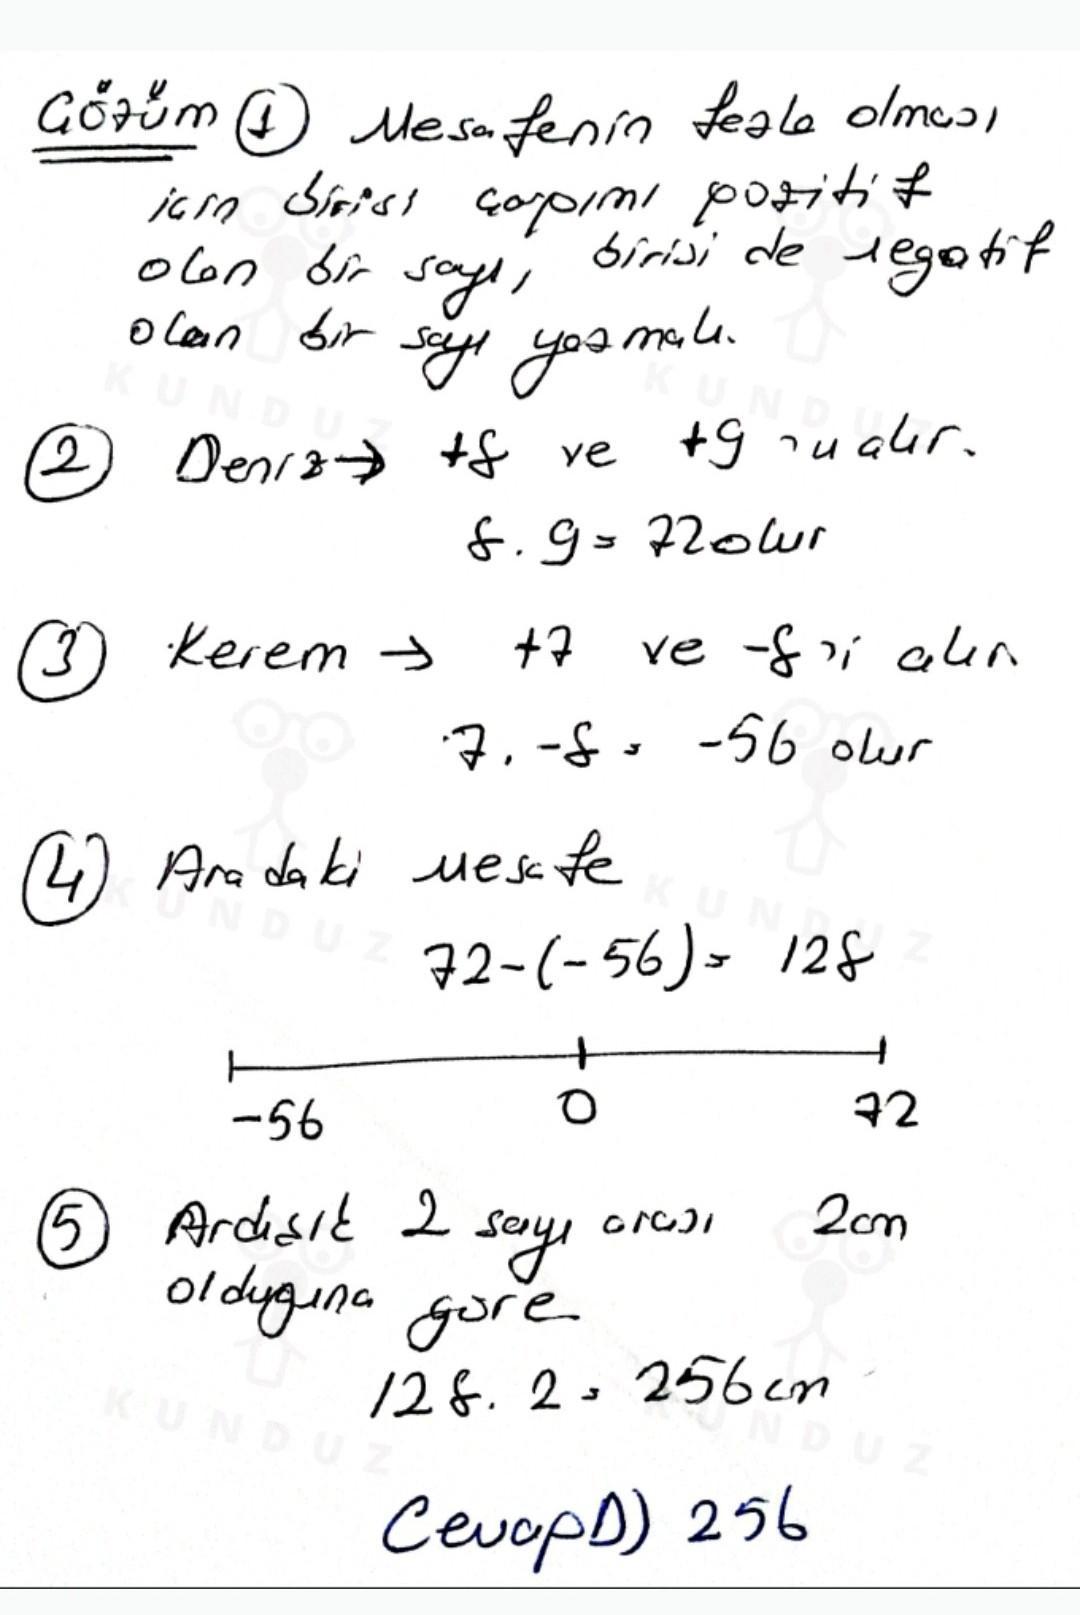 Çözüm ① Mesafenin fazla olması
için birisi çarpımı pozitif
olan bir sayı, birisi de negatif
olan bir sayı yazmalı.
② Deniz → +8 ve +9 'u alır.
8.9 = 72 olur
③ Kerem → +7 ve -8'i alır
7.-8 = -56 olur
④ Aradaki mesafe
72-(-56) = 128
-56 0 72
⑤ Ardışık 2 sayı arası 2cm
olduğuna göre
128.2 = 256 cm
Cevap D) 256
KUNDUZ KUNDUZ
KUNDUZ KUNDUZ
KUNDUZ KUNDUZ